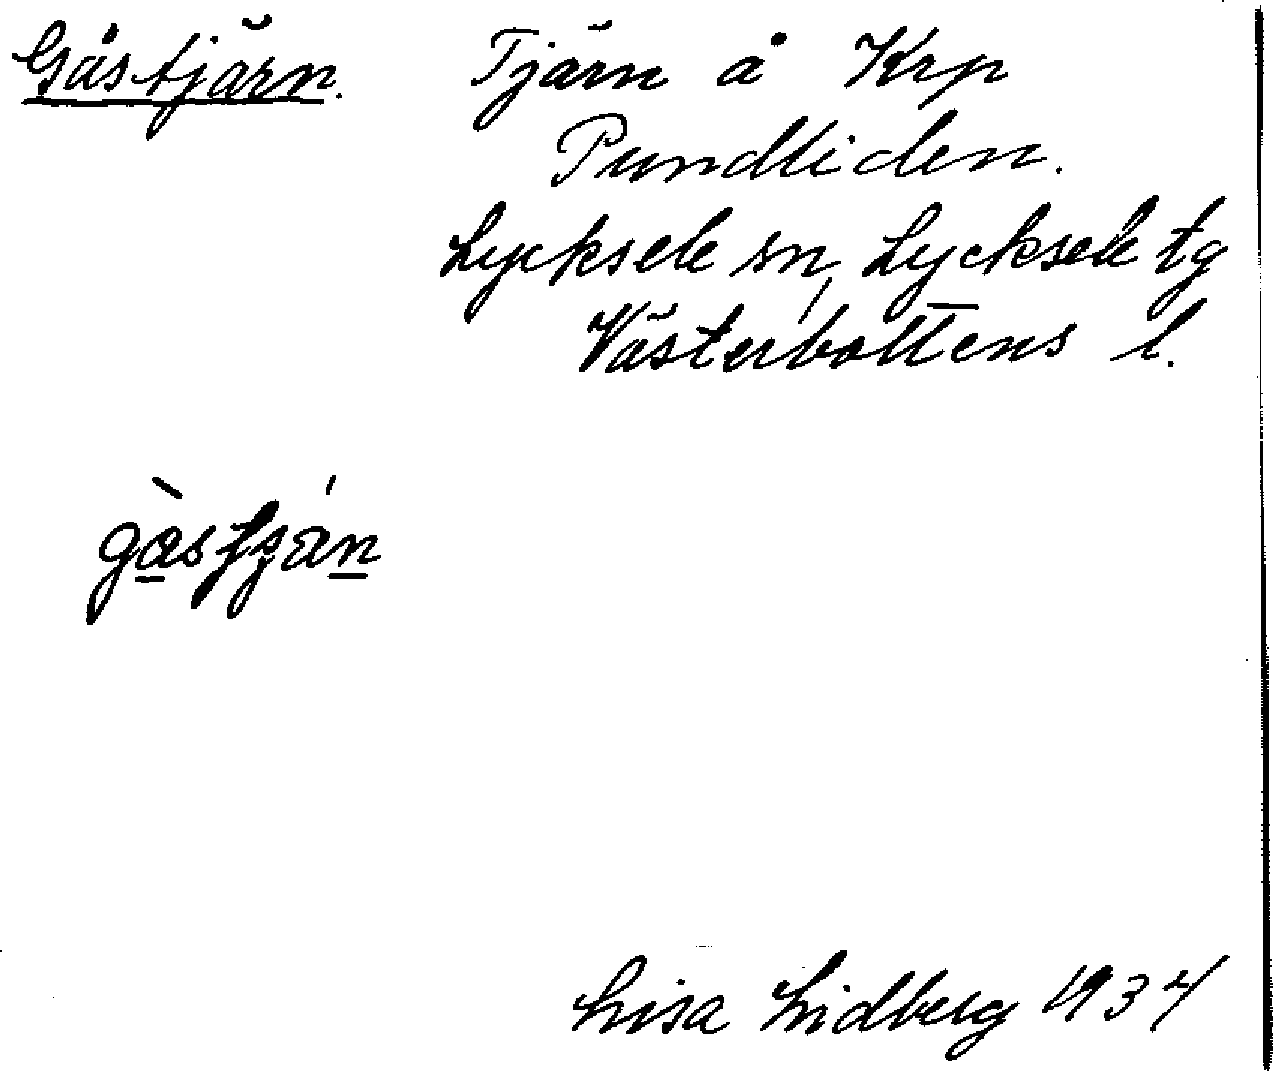 Gåstjärn. Tjärn å Krp
Pundliden.
Lycksele sn, Lycksele tg
Västerbottens l.
Lisa Lidberg 1934